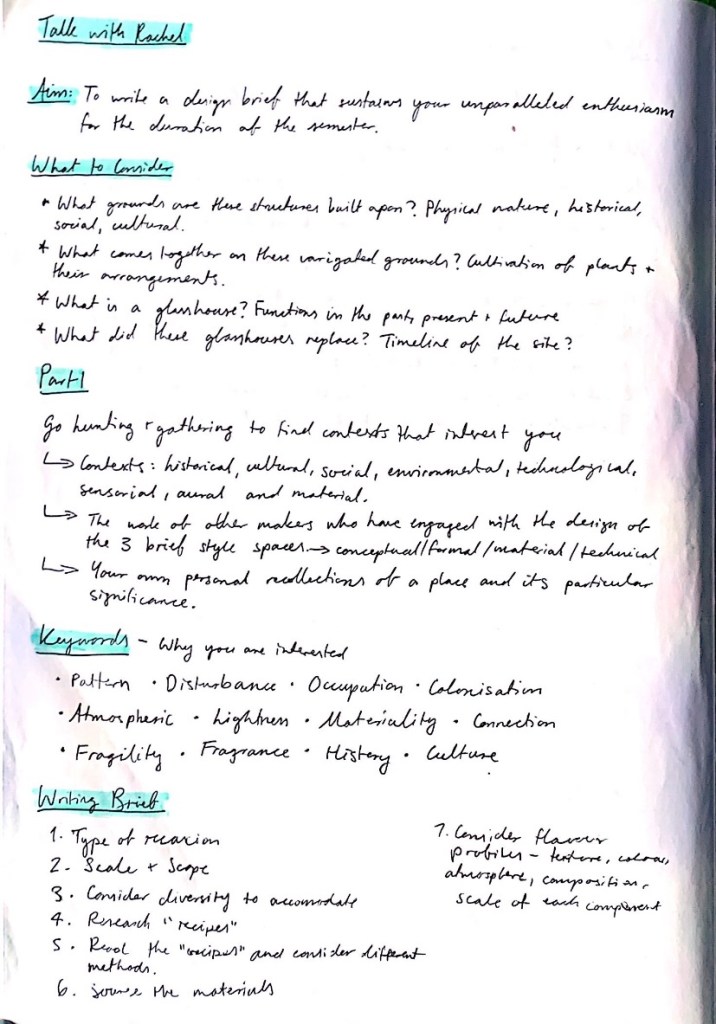 Talk with Rachel
Aim: To write a design brief that sustains your unparalleled enthusiasm
for the duration of the semester.
What to Consider
* What grounds are these structures built apon? Physical nature, historical,
social, cultural.
* What comes together on these varigated grounds? Cultivation of plants +
their arrangements.
* What is a glasshouse? Functions in the past, present + future
* What did these glasshouses replace? Timeline of the site?
Part 1
Go hunting + gathering to find contexts that interest you
↳ Contexts: historical, cultural, social, environmental, technological,
sensorial, aural and material.
↳ The work of other makers who have engaged with the design of
the 3 brief style spaces → conceptual/formal/material/technical
↳ Your own personal recollections of a place and its particular
significance.
Keywords - Why you are interested
• Pattern • Disturbance • Occupation • Colonisation
• Atmospheric • Lightness • Materiality • Connection
• Fragility • Fragrance • History • Culture
Writing Brief
1. Type of occasion
2. Scale + Scope
3. Consider diversity to accomodate
4. Research "recipes"
5. Read the "recipes" and consider different
methods.
6. Source the materials
7. Consider flavour
profiles - texture, colour,
atmosphere, composition,
scale of each component